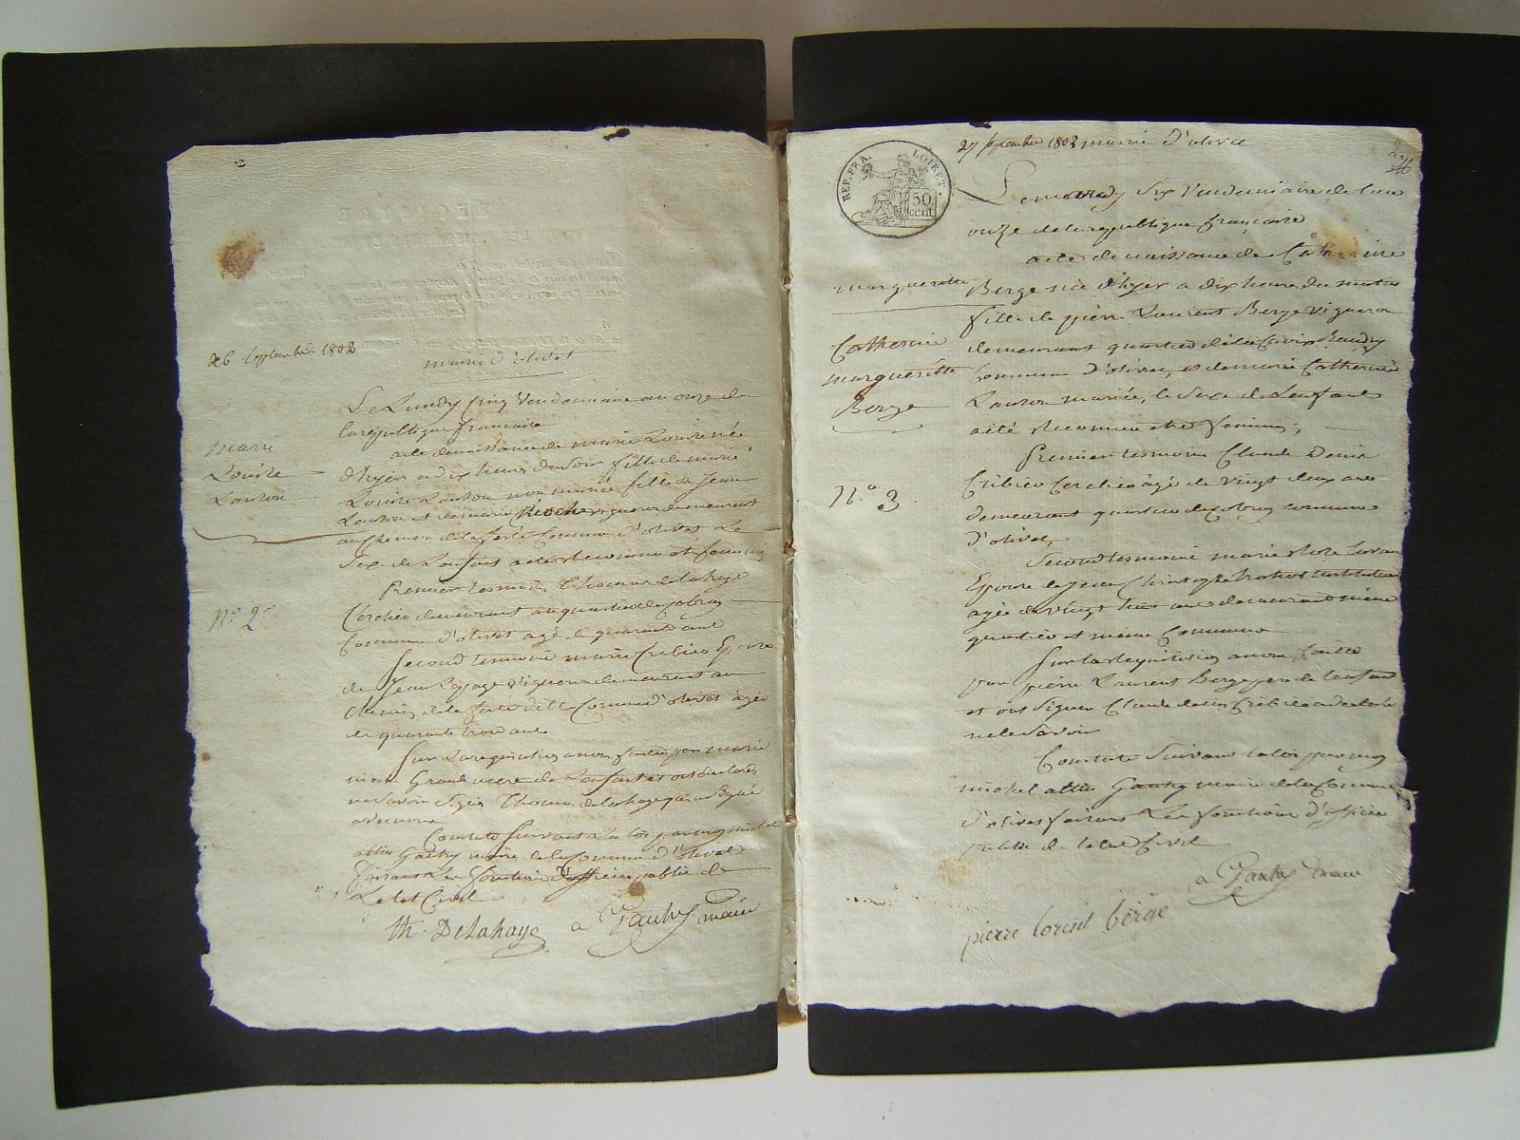 26 Septembre 1802
mairie d'olivet
Le Lundy cinq Vendemiaire an onze de
la republique francaise
acte de naissance de marie Louise née
d'hyer a dix heures du soir fille de marie
Louise Lauson non mariée fille de Jean
Lauson et de marie vigneron demeurant
au chemin de la ferté Commune d'olivet Le
Sexe de L'enfant a été reconnu et feminin
marie
Louise
Lauson
Premier temoin Thomas delahaye
Cerclier demeurant au quartier de
Commune d'olivet agé de quarante ans
N.o 2.e
Second temoin marie Cribier Epouse
de Jean vigneron demeurant au
Chemin de la ferté dite Commune d'olivet agée
de quarante trois ans
Sur La requisition a nous faite par marie
Grand mere de L'enfant et ont declaré
ne savoir signer Thomas delahaye qui a signé
avec nous
Constaté suivant La loi par moy michel
altin Gautry maire de la Commune d'olivet
faisant Les fonctions d'officier public de
L'etat Civil
th. Delahaye a Gautry maire
REP. FRA. LOIRET.
50
cent
27 septembre 1802 mairie d'olivet
Le mardy Six Vendemiaire de l'an
onze de la republique francaise
acte de naissance de Catherine
marguerette
Berge née d'hyer a dix heure du matin
fille de pierre Laurent Berge vigneron
demeurant quartier de la Croix
Commune d'olivet, et de marie Catherine
Lauson mariée, le Sexe de L'enfant
a été reconnu etre feminin,
Catherine
marguerette
Berge
Premier temoin Claude Denis
Cribier Cerclier agé de vingt deux ans
demeurant quartier de commune
d'olivet,
N.o 3
Second temoin marie
Epouse de Jean instituteur
agée de vingt ans demeurant même
quartier et même Commune
Sur la requisition a nous faitte
par pierre Laurent Berge pere de l'enfant
et ont signé Claude denis Cribier a declaré
ne le savoir
Constaté Suivant la loi par moy
michel altin Gautry maire de la Commune
d'olivet faisant Les fonctions d'officier
public de l'etat Civil
a Gautry maire
pierre lorent berge